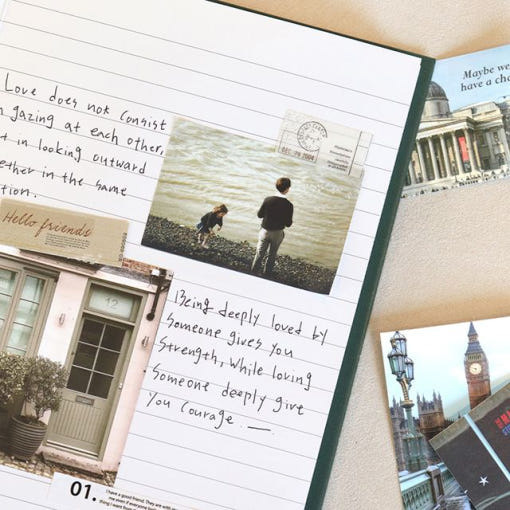 Love does not Consist
gazing at each other,
in looking outward
in the same
Hello friends
DEC 28 2004
12
Being deeply loved by
Someone gives you
Strength, while loving
Someone deeply give
You Courage. —
01.
I have a good friend. They are with
me even if everyone
thing I want from
Maybe we
have a cha